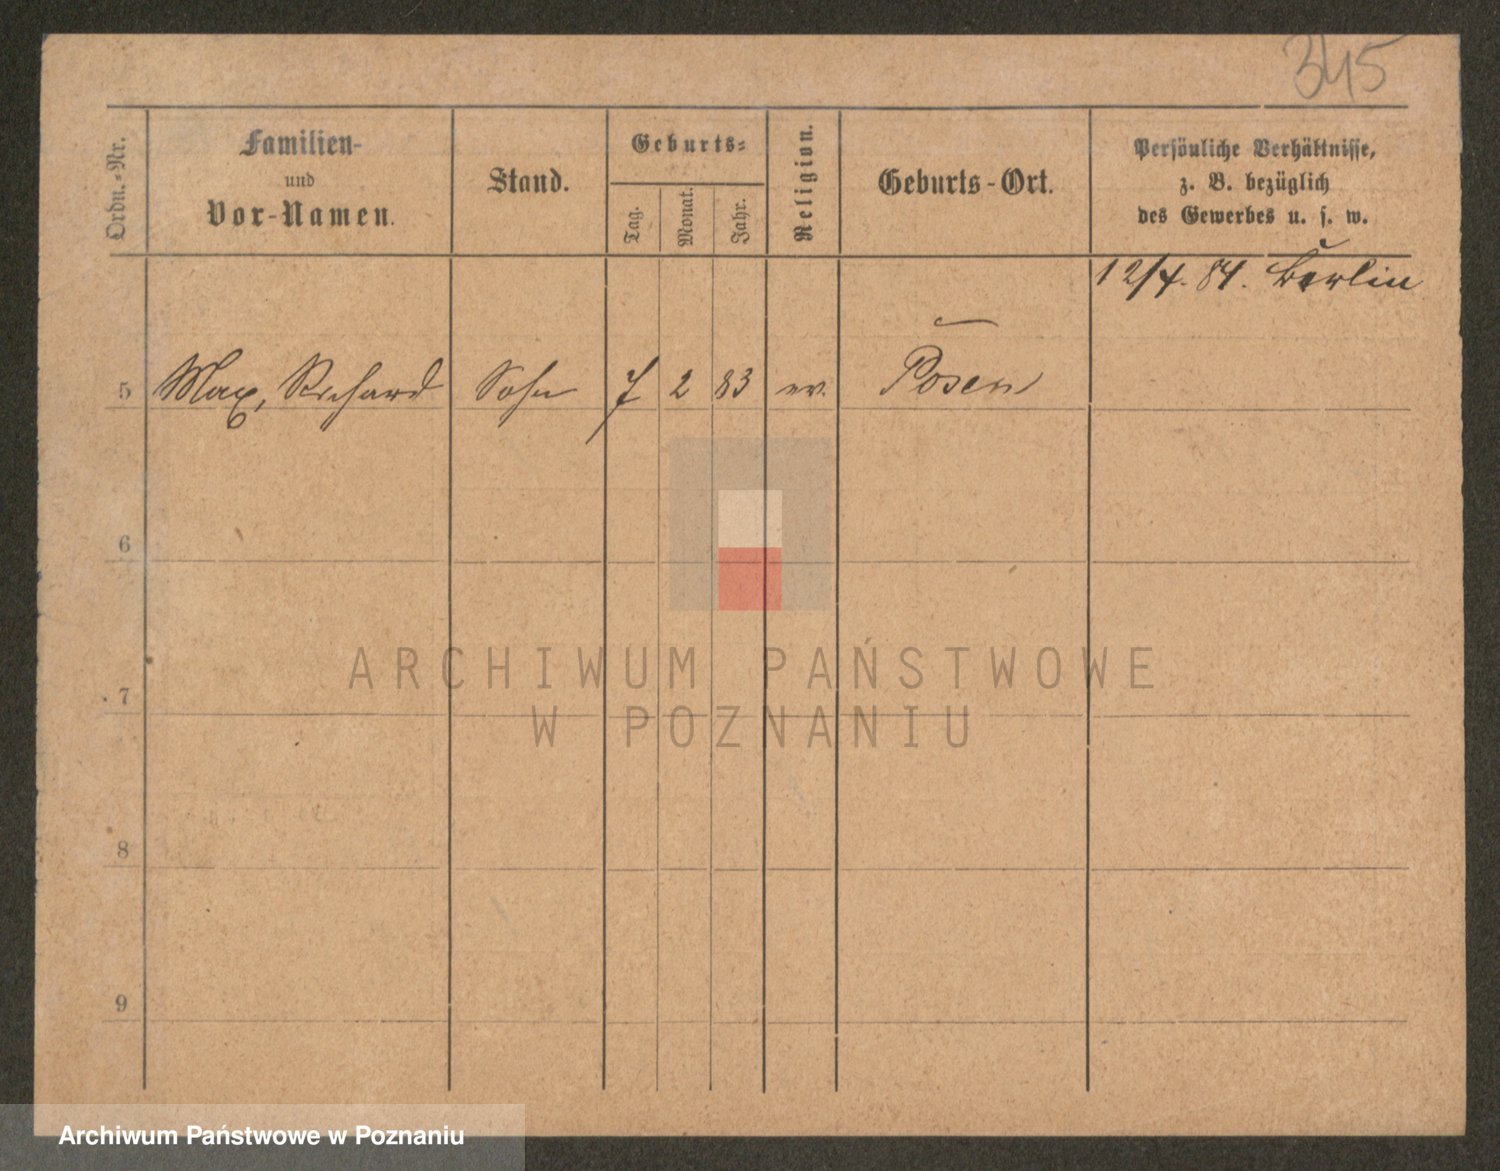 345
Ordn.-Nr.
Familien-
und
Vor-Namen.
Stand.
Geburts-
Tag.
Monat.
Jahr.
Religion.
Geburts-Ort.
Persönliche Verhältnisse,
z. B. bezüglich
des Gewerbes u. s. w.
12/4. 84. Berlin
5 Max, Richard Sohn 7 2 83 ev. Posen
6
7
8
9
ARCHIWUM PAŃSTWOWE
W POZNANIU
Archiwum Państwowe w Poznaniu